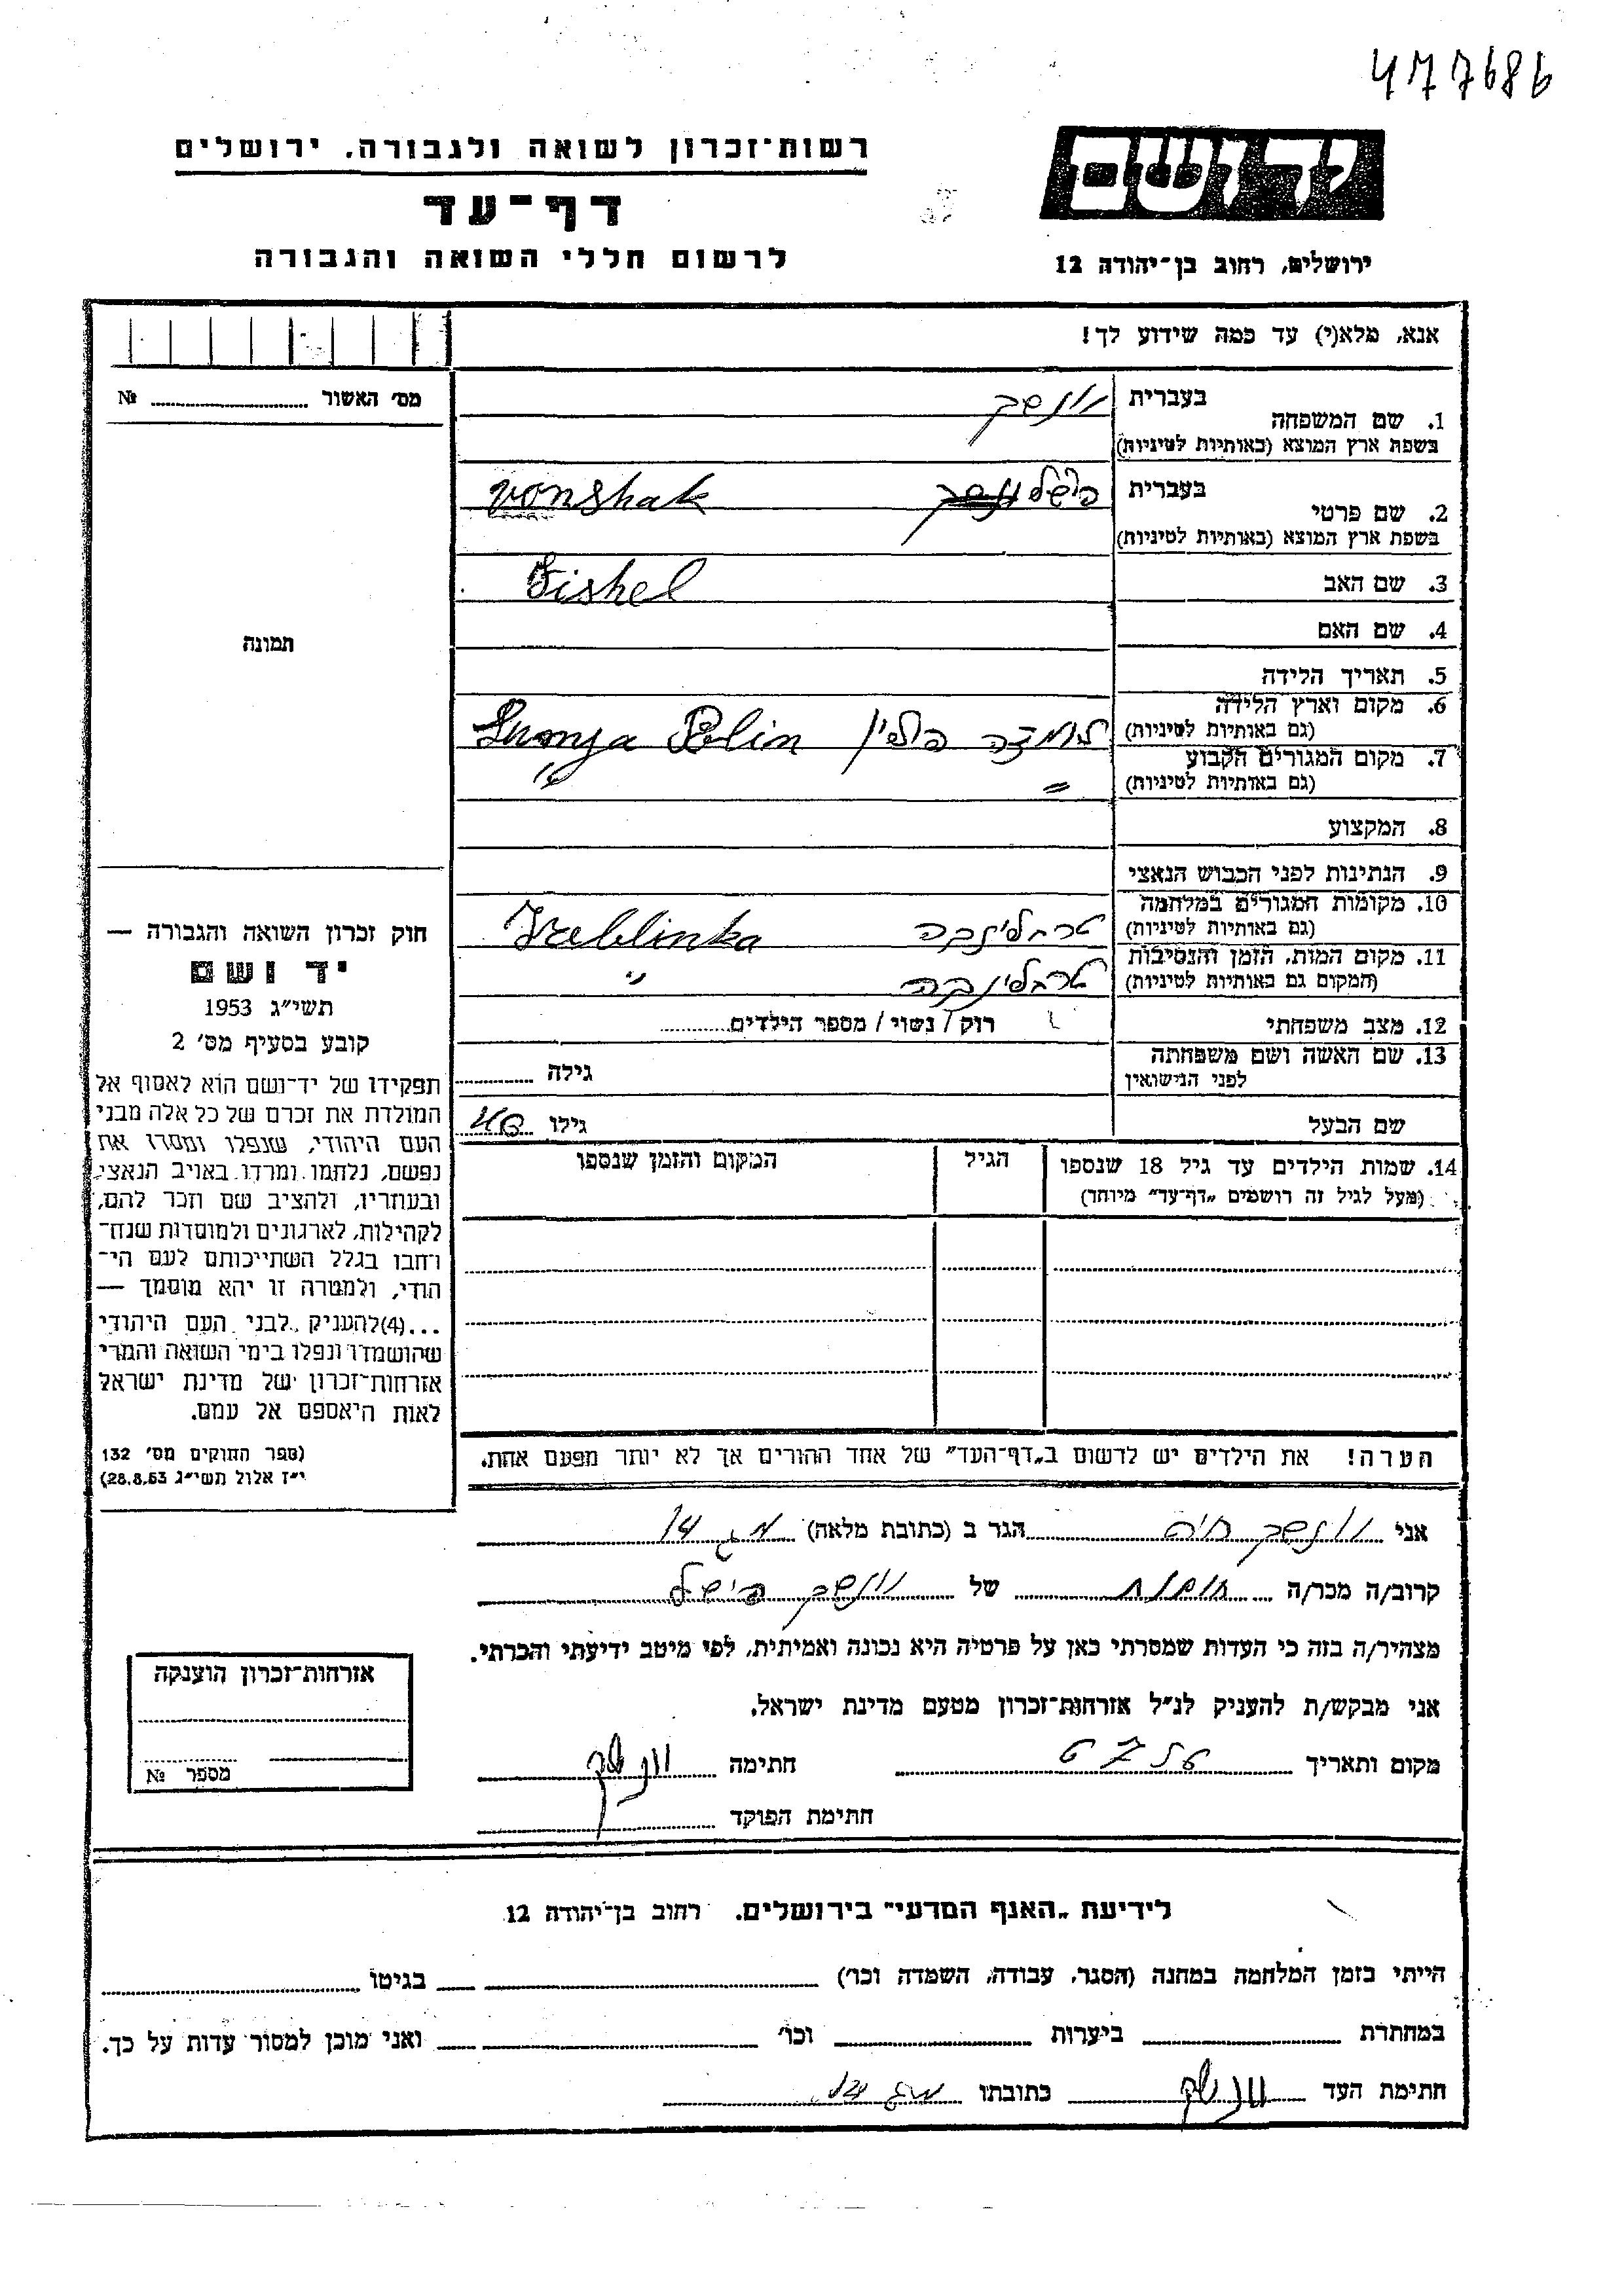 477686
יד ושם
רשות־זכרון לשואה ולגבורה. ירושלים
דף־עד
לרשום חללי השואה והגבורה
ירושלים, רחוב בן־יהודה 12
אנא, מלא(י) עד כמה שידוע לך!
מס׳ האשור № 
1. שם המשפחה בעברית
בשפת ארץ המוצא (באותיות לטיניות)
2. שם פרטי בעברית פישל
vonshak
בשפת ארץ המוצא (באותיות לטיניות)
3. שם האב
Fishel
4. שם האם
5. תאריך הלידה
6. מקום וארץ הלידה
(גם באותיות לטיניות)
פולין Polin
7. מקום המגורים הקבוע
(גם באותיות לטיניות) = "
8. המקצוע
9. הנתינות לפני הכבוש הנאצי
10. מקומות המגורים במלחמה
(גם באותיות לטיניות) טרבלינקה
11. מקום המות, הזמן והנסיבות
(המקום גם באותיות לטיניות) טרבלינקה "
12. מצב משפחתי רוק / נשוי / מספר הילדים
13. שם האשה ושם משפחתה
לפני הנישואין גילה
שם הבעל גילו
14. שמות הילדים עד גיל 18 שנספו הגיל המקום והזמן שנספו
(מעל לגיל זה רושמים „דף־עד״ מיוחד)
תמונה
חוק זכרון השואה והגבורה —
יד ושם
תשי״ג 1953
קובע בסעיף מס׳ 2
תפקידו של יד־ושם הוא לאסוף אל
המולדת את זכרם של כל אלה מבני
העם היהודי, שנפלו ומסרו את
נפשם, נלחמו ומרדו באויב הנאצי
ובעוזריו, ולהציב שם וזכר להם,
לקהילות, לארגונים ולמוסדות שנח־
רחבו בגלל השתייכותם לעם הי־
הודי, ולמטרה זו יהא מוסמך —
...(4)להעניק לבני העם היהודי
שהושמדו ונפלו בימי השואה והמרי
אזרחות־זכרון של מדינת ישראל
לאות היאספם אל עמם.
(ספר החוקים מס׳ 132
י״ז אלול תשי״ג 28.8.53)
הערה! את הילדים יש לרשום ב„דף־העד״ של אחד ההורים אך לא יותר מפעם אחת.
אני ונשק חיה הגר ב (כתובת מלאה)
קרוב/ה מכר/ה של ונשק פישל
מצהיר/ה בזה כי העדות שמסרתי כאן על פרטיה היא נכונה ואמיתית, לפי מיטב ידיעתי והכרתי.
אני מבקש/ת להעניק לנ״ל אזרחות־זכרון מטעם מדינת ישראל.
מקום ותאריך חתימה
חתימת הפוקד
אזרחות־זכרון הוענקה
מספר №
לידיעת „האגף המדעי״ בירושלים. רחוב בן־יהודה 12
הייתי בזמן המלחמה במחנה (הסגר, עבודה, השמדה וכו׳) בגיטו
במחתרת ביערות וכו׳ ואני מוכן למסור עדות על כך.
חתימת העד כתובתו